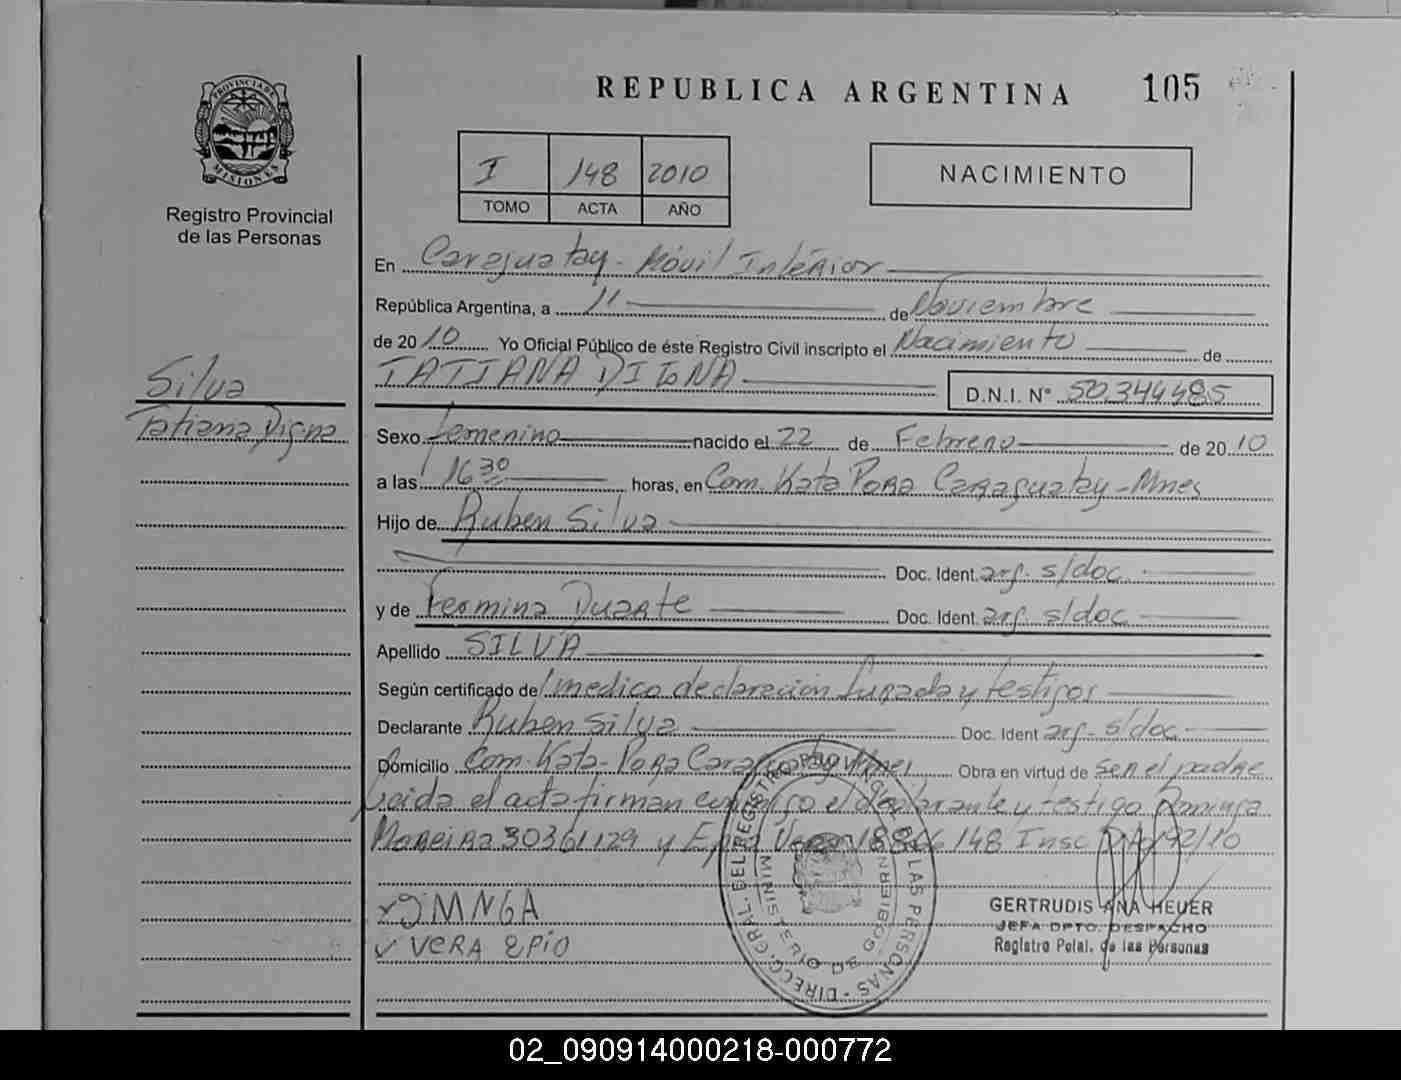 REPUBLICA ARGENTINA 105
PROVINCIA DE MISIONES
Registro Provincial
de las Personas
I 148 2010
TOMO ACTA AÑO
NACIMIENTO
En Caraguatay - Móvil Interior
República Argentina, a 11 de Noviembre
de 2010 Yo Oficial Público de éste Registro Civil inscripto el Nacimiento de
TATIANA DIGNA D.N.I. Nº 50.344.485
Silva
Tatiana Digna
Sexo femenino nacido el 22 de Febrero de 2010
a las 16 30 horas, en Com. Kata Pora Caraguatay - Mnes
Hijo de Ruben Silva
Doc. Ident. arg. s/doc
y de Fermina Duarte Doc. Ident. arg. s/doc
Apellido SILVA
Según certificado de médico declaración Jurada y testigos
Declarante Ruben Silva Doc. Ident arg - s/doc
Domicilio Com. Kata - Pora Caraguatay Mnes Obra en virtud de ser el padre
Leida el acta firman conmigo el declarante y testigo
Moreira 30361129 y Vera 18866148 Insc 192/10
VERA EPIO
GERTRUDIS ANA HEUER
JEFA DPTO. DESPACHO
Registro Pcial. de las Personas
DIRECC. GRAL. DEL REGISTRO PROVINCIAL DE LAS PERSONAS
MINISTERIO DE GOBIERNO
02_090914000218-000772